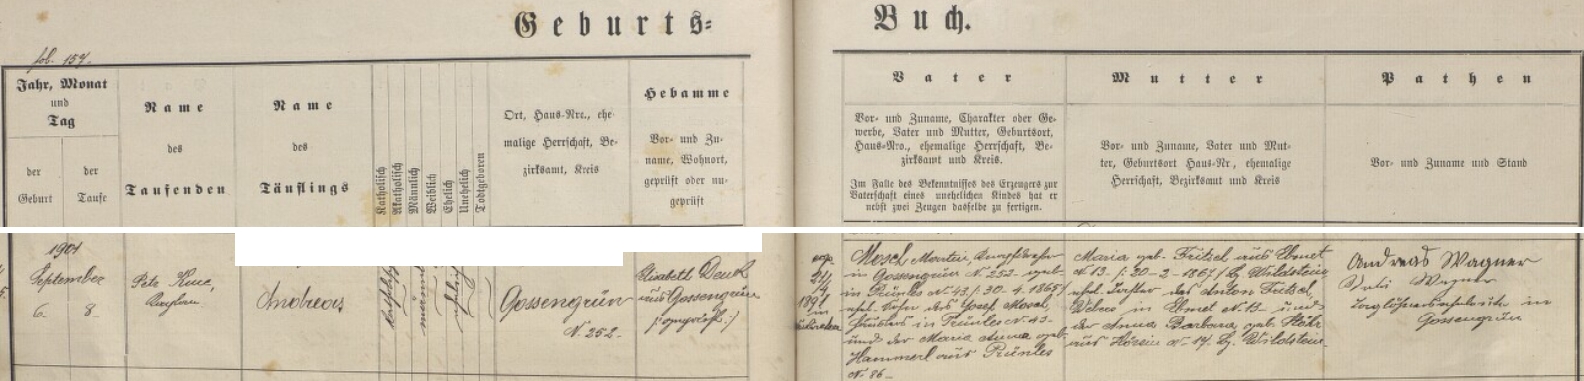 Geburts-
Buch.
fol. 157.
Jahr, Monat
und
Tag
der
Geburt
der
Taufe
Name
des
Taufenden
Name
des
Täuflings
Katholisch
Akatholisch
Männlich
Weiblich
Ehelich
Unehelich
Todtgeboren
Ort, Haus-Nro., ehe-
malige Herrschaft, Be-
zirksamt, Kreis
Hebamme
Vor- und Zu-
name, Wohnort,
geprüft oder un-
geprüft
Vater
Vor- und Zuname, Charakter oder Ge-
werbe, Vater und Mutter, Geburtsort,
Haus-Nro., ehemalige Herrschaft, Be-
zirksamt und Kreis.
Im Falle des Bekenntnisses des Erzeugers zur
Vaterschaft eines unehelichen Kindes hat er
nebst zwei Zeugen dasselbe zu fertigen.
Mutter
Vor- und Zuname, Vater und Mut-
ter, Geburtsort Haus-Nr, ehemalige
Herrschaft, Bezirksamt und Kreis
Pathen
Vor- und Zuname und Stand
1901
September
6.
8.
Andreas
Gossengrün
N. 252.
Elisabeth
aus Gossengrün
Mosch Martin,
in Gossengrün N. 252 geb.
in Prünles N. 43 /: 30. 4. 1865 /
ehel. Sohn des Josef Mosch,
in Prünles N. 43
und der Maria Anna geb.
Hammerl aus Prünles
N. 86
Maria geb. Fritsch aus Ebmet
N. 13. /: 20-2-1867 / Bz. Wildstein
ehel. Tochter des Anton Fritsch,
Webers in Ebmet N. 13 und
der Anna Barbara geb.
aus N. 17. Bz. Wildstein
Andreas Wagner
Wagner
in
Gossengrün